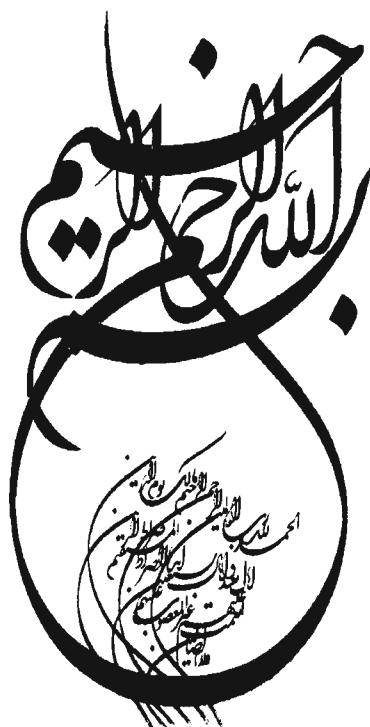 بسم الله الرحمن الرحيم
الحمد لله رب العالمين الرحمن الرحيم ملك يوم الدين
اياك نعبد و اياك نستعين اهدنا الصراط المستقيم
صراط الذين انعمت عليهم
غير المغضوب عليهم
ولا الضالين